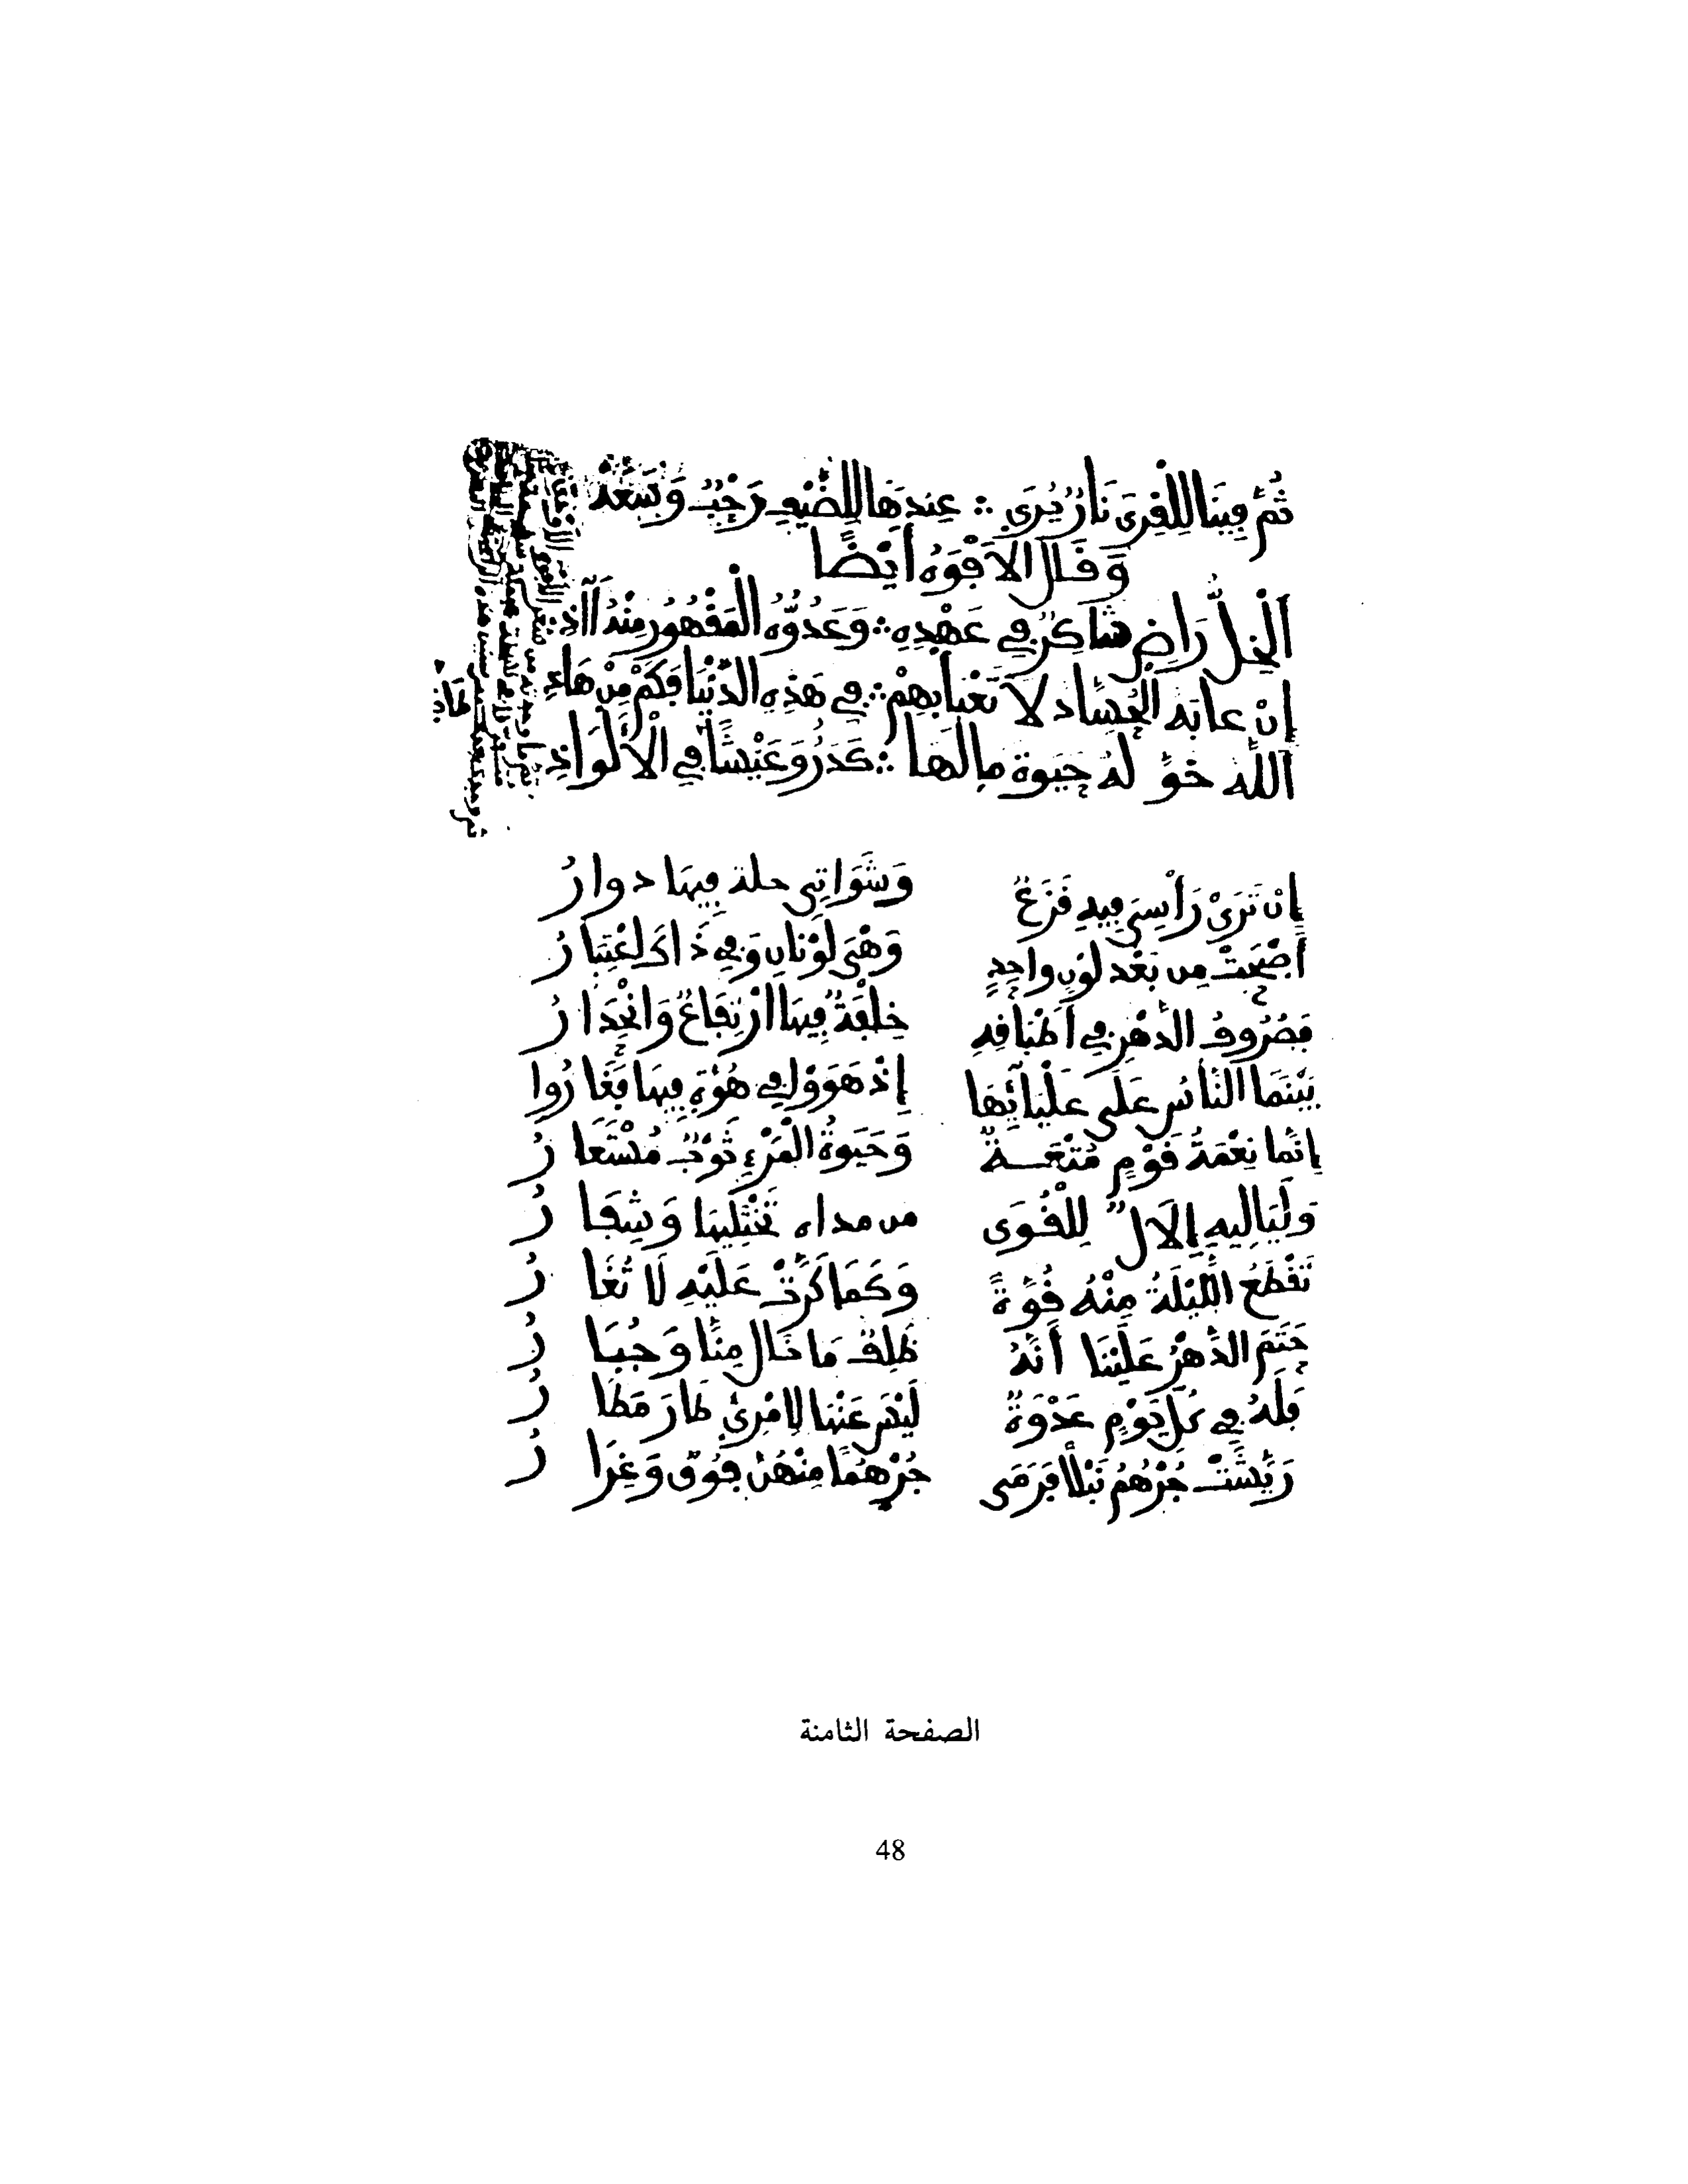 ثُمَّ فِينَا لِلْقِرَى نَارٌ يُرَى ∴ عِنْدَهَا لِلضَّيْفِ رَحْبٌ وَسَعَهْ
وَقَالَ الأَفْوَهُ أَيْضًا
اَلْخِلُّ رَاضٍ شَاكِرٌ فِي عَهْدِهِ ∴ وَعَدُوُّهُ الْمَقْهُورُ مِنْهُ آذِ
إِنْ عابه الْحُسَّاد لا تَعْبَأْ بِهِمْ ∴ فِي هَذِهِ الدُّنْيَا فَكَمْ مِنْ هَاذِ
اَللَّه خَوَّلَهُ حَيَوةً مالَهَا ∴ كَدَرٌ وَعَيْشًا فِي الْأَلْوَاذِ
إِنْ تَرَىْ رَأْسِيَ فِيهِ قَزَعٌ وَشَوَاتِي خلة فِيهَا دوارُ
أَصْبَحَتْ مِن بَعْدِ لَوْنٍ واحِدٍ وَهْيَ لَوْنَانِ وَفِي ذَاكَ اعْتِبَارُ
فَصُرُوفُ الدَّهْرِ فِي أَطْبَاقِهِ خِلْفَةٌ فِيهَا ارْتِفَاعٌ وَانْحِدَارُ
بَيْنَمَا النَّاسُ عَلَى عَلْيَائِهَا إِذْ هَوَوْا فِي هُوَّةٍ فِيهَا فَغَارُوا
إِنَّما نِعْمَةُ قَوْمٍ مُتْعَـــةٌ وَحَيَوةُ الْمَرْءِ ثَوْبٌ مُسْتَعَارُ
وَلَيَالِيهِ إِلَالٌ لِلْقُوَى من مداه تَخْتَلِيهَا وَشِفَارُ
تَقْطَعُ اللَّيْلَةُ مِنْهُ قُوَّةً وَكَمَا كَرَّتْ عَلَيْهِ لَا تُغَارُ
حَتَمَ الدَّهْرُ عَلَيْنَا أَنَّهُ ظَلَفٌ مَا نَالَ مِنَّا وَجُبَارُ
فَلَهُ فِي كُلِّ يَوْمٍ عَدْوَةٌ لَيْسَ عَنْهَا لِامْرِئٍ طَارَ مَطَارُ
رَيَّشَتْ جُرْهُمُ نَبْلًا فَرَمَى جُرْهُمًا مِنْهُنَّ فُوقٌ وَغِرَارُ
الصفحة الثامنة
48